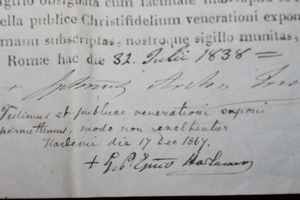 sigillo obsignata cum facultate
ella publice Christifidelium venerationi expon
manu subscriptas, nostroque sigillo munitas,
Romæ hac die 31. Julii 1838
+
Vidimus et publicae venerationi exponi
permittimus, modo non exallhentur
Harlemi die 17 Dec 1867.
+ G. P. Epus Harlemen